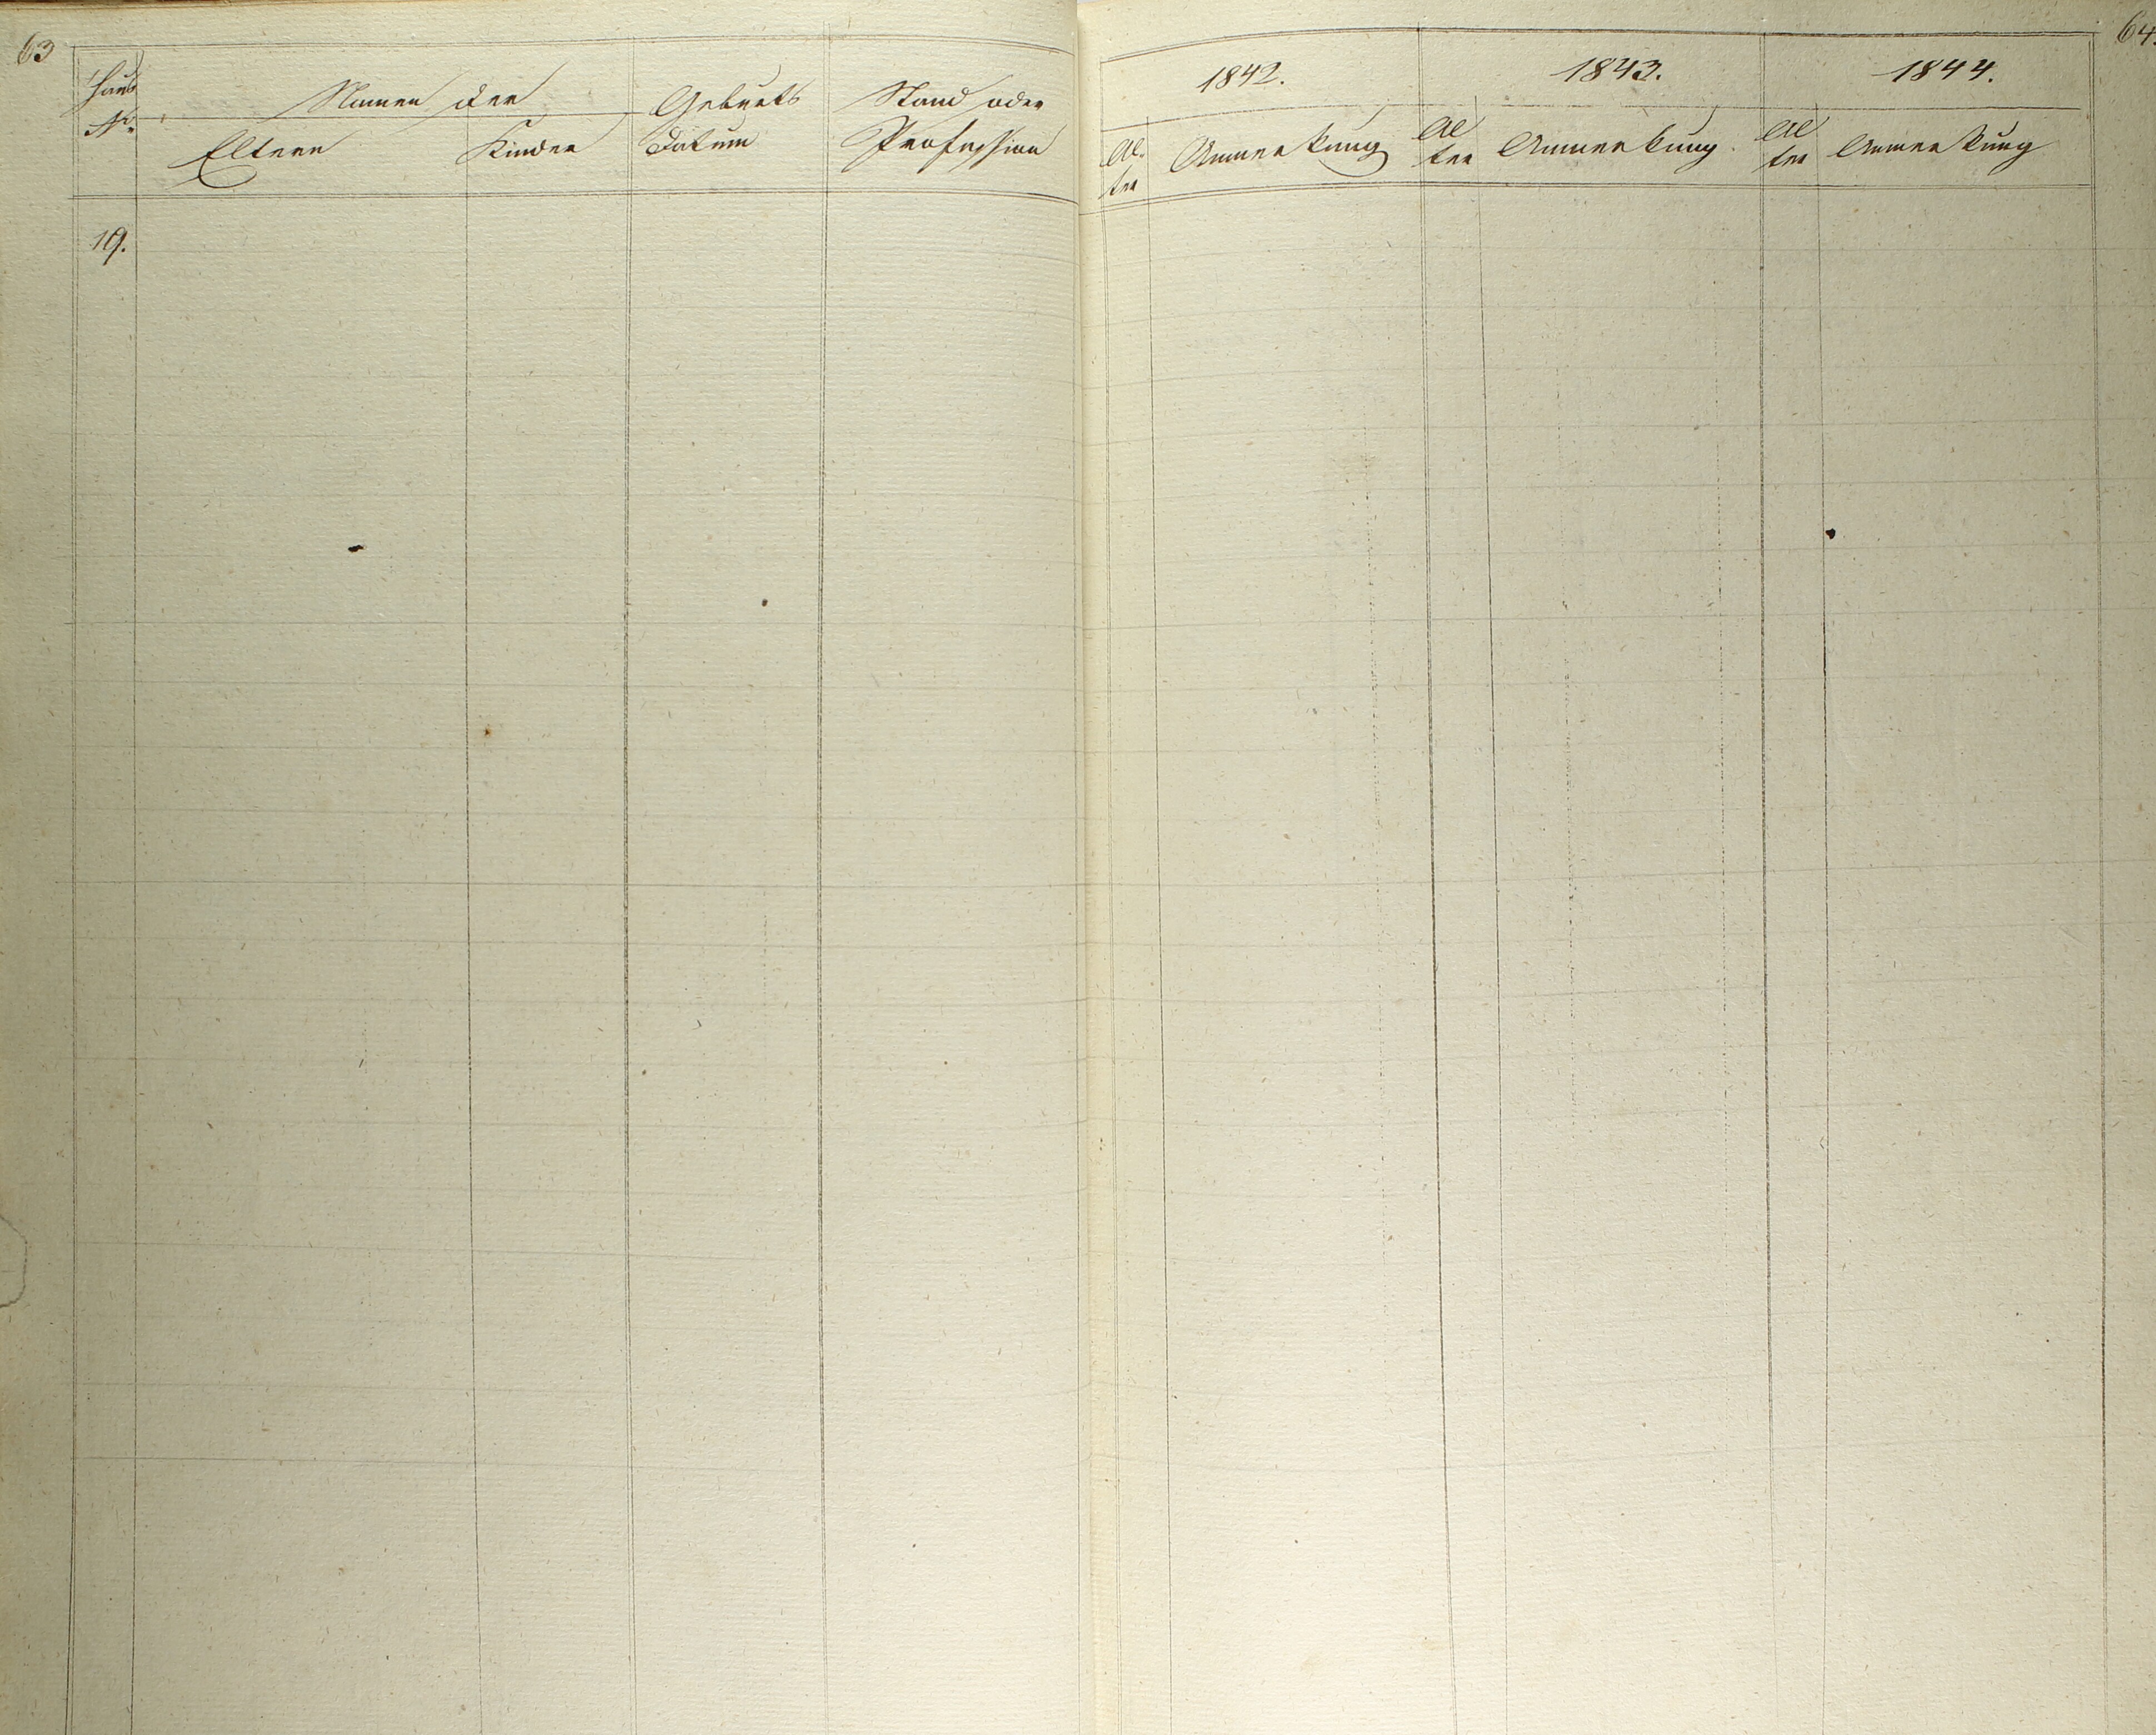 63
Haus No.
Namen der
Eltern
Kinder
Geburts
datum
Stand oder
Profession
19.
64.
1842.
1843.
1844.
Al-
ter
Anmerkung
Al
ter
Anmerkung.
Al
ter
Anmerkung